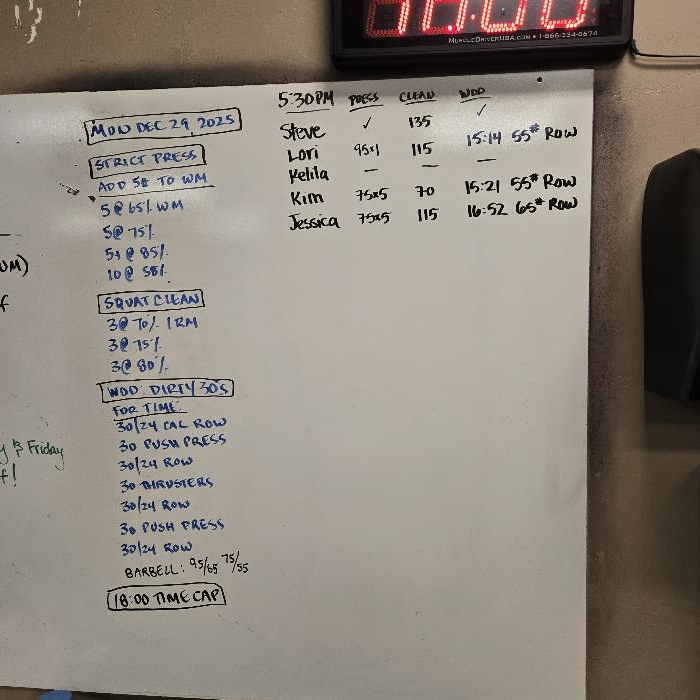 MUSCLEDRIVERUSA.COM • 1-866-334-6674
MON DEC 29, 2025
STRICT PRESS
ADD 5# TO WM
5@ 65% WM
5@ 75%
5+ @ 85%
10 @ 58%
SQUAT CLEAN
3@ 70% 1RM
3@ 75%
3@ 80%
WOD: DIRTY 30'S
FOR TIME:
30/24 CAL ROW
30 PUSH PRESS
30/24 ROW
30 THRUSTERS
30/24 ROW
30 PUSH PRESS
30/24 ROW
BARBELL: 95/65 75/55
18:00 TIME CAP
5:30PM PRESS CLEAN WOD
Steve ✓ 135 ✓
Lori 95x1 115 15:14 55# ROW
Kelila — — —
Kim 75x5 70 15:21 55# ROW
Jessica 75x5 115 16:52 65# ROW
WM)
f
y & Friday
f!